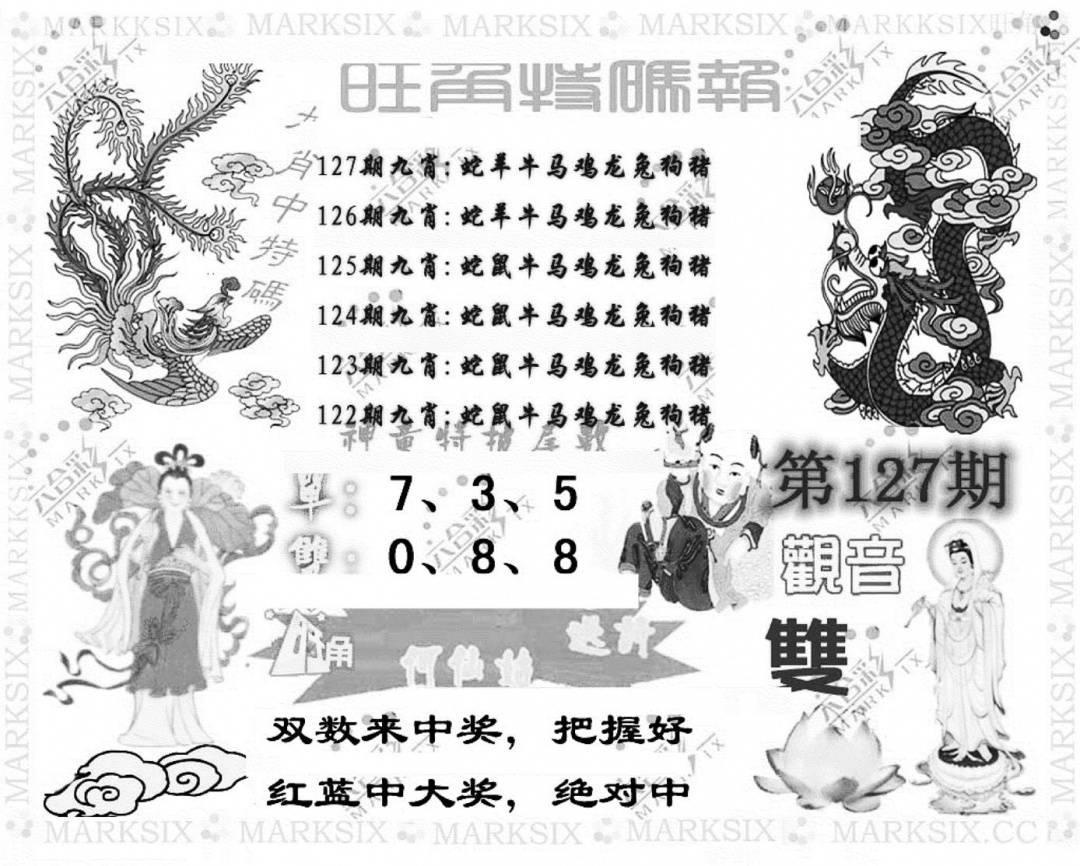 MARKKSIX MARKSIX MARKSIX MARKKSIX
旺角特碼報
九肖中特碼
127期九肖:蛇羊牛马鸡龙兔狗猪
126期九肖:蛇羊牛马鸡龙兔狗猪
125期九肖:蛇鼠牛马鸡龙兔狗猪
124期九肖:蛇鼠牛马鸡龙兔狗猪
123期九肖:蛇鼠牛马鸡龙兔狗猪
122期九肖:蛇鼠牛马鸡龙兔狗猪
神童特报尾數
單: 7、3、5
雙: 0、8、8
第127期
觀音
雙
何仙姑
双数来中奖,把握好
红蓝中大奖,绝对中
MARKSIX MARKSIX MARKSIX MARKSIX MARKSIX.CC